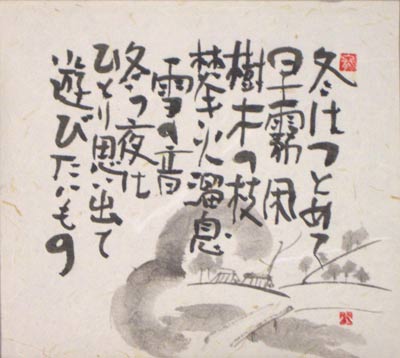 冬はつとめて
早霧
樹木の枝
焚き火溜息
雪の音
冬の夜は
ひとり思い出て
遊びたいもの